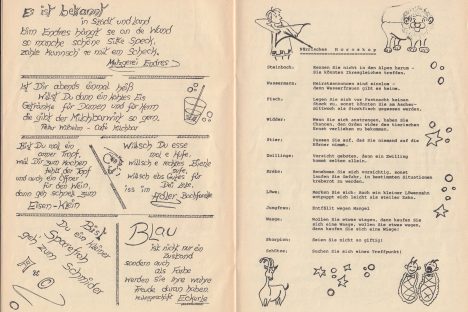 Es ist bekannt
in Stadt und Land
beim Endres hängt se an de Wand
so manche schöne Seite Speck,
zahle kannsch se mit em Scheck.
Metzgerei Endres
Ist Dir abends einmal heiß
willst Du dann ein kühles Eis
Getränke für Damen und für Herrn
die gibt der Milchbarwirt so gern.
Peter Wilhelm - Café Milchbar
Bist Du mal ein
armer Tropf,
weil Dir zum Kochen
fehlt der Topf
und auch ein Öffner
für den Wein,
dann geh schnell zum
Eisen-Klein
Willsch Du esse
mol e Hufe,
willsch e rechtes Vierle
iss im
Adler
Bist
Du ein kleiner
Sparefroh
geh zum Schneider
A+O
Blau
ist nicht nur ein
Zustand
sondern auch
als Farbe
werden Sie Ihre wahre
Freude daran haben
Eckerle
Närrisches Horoskop
Steinbock: Kennen Sie nicht in den Alpen herum -
Sie könnten Ihresgleichen treffen.
Wassermann: Heiratsannoncen sind sinnlos -
denn Wasserfrauen gibt es kaum.
Fisch: Legen Sie sich vor Fastnacht keinen
Rausch zu, sonst könnten Sie am Aschermittwoch
als Fischfilet gegessen werden.
Widder: Wenn Sie sich anstrengen, haben Sie
Chancen, den Orden wider den tierischen
Ernst verliehen zu bekommen.
Stier: Passen Sie auf, daß Sie niemand auf die
Hörner nimmt.
Zwillinge: Vorsicht geboten, denn ein Zwilling
kommt selten allein.
Krebs: Benehmen Sie sich vorsichtig, sonst
laufen Sie Gefahr, in bestimmten Situationen
krebsrot zu werden.
Löwe: Merken Sie sich: Auch ein kleiner Löwenzahn
entpuppt sich leicht als steiler Zahn.
Jungfrau: Entfällt wegen Mangel
Waage: Wollen Sie etwas wiegen, dann kaufen Sie
sich eine Waage, wollen Sie etwas wagen,
dann kaufen Sie etwas.
Skorpion: Seien Sie nicht so giftig!
Schütze: Suchen Sie sich einen Treffpunkt!